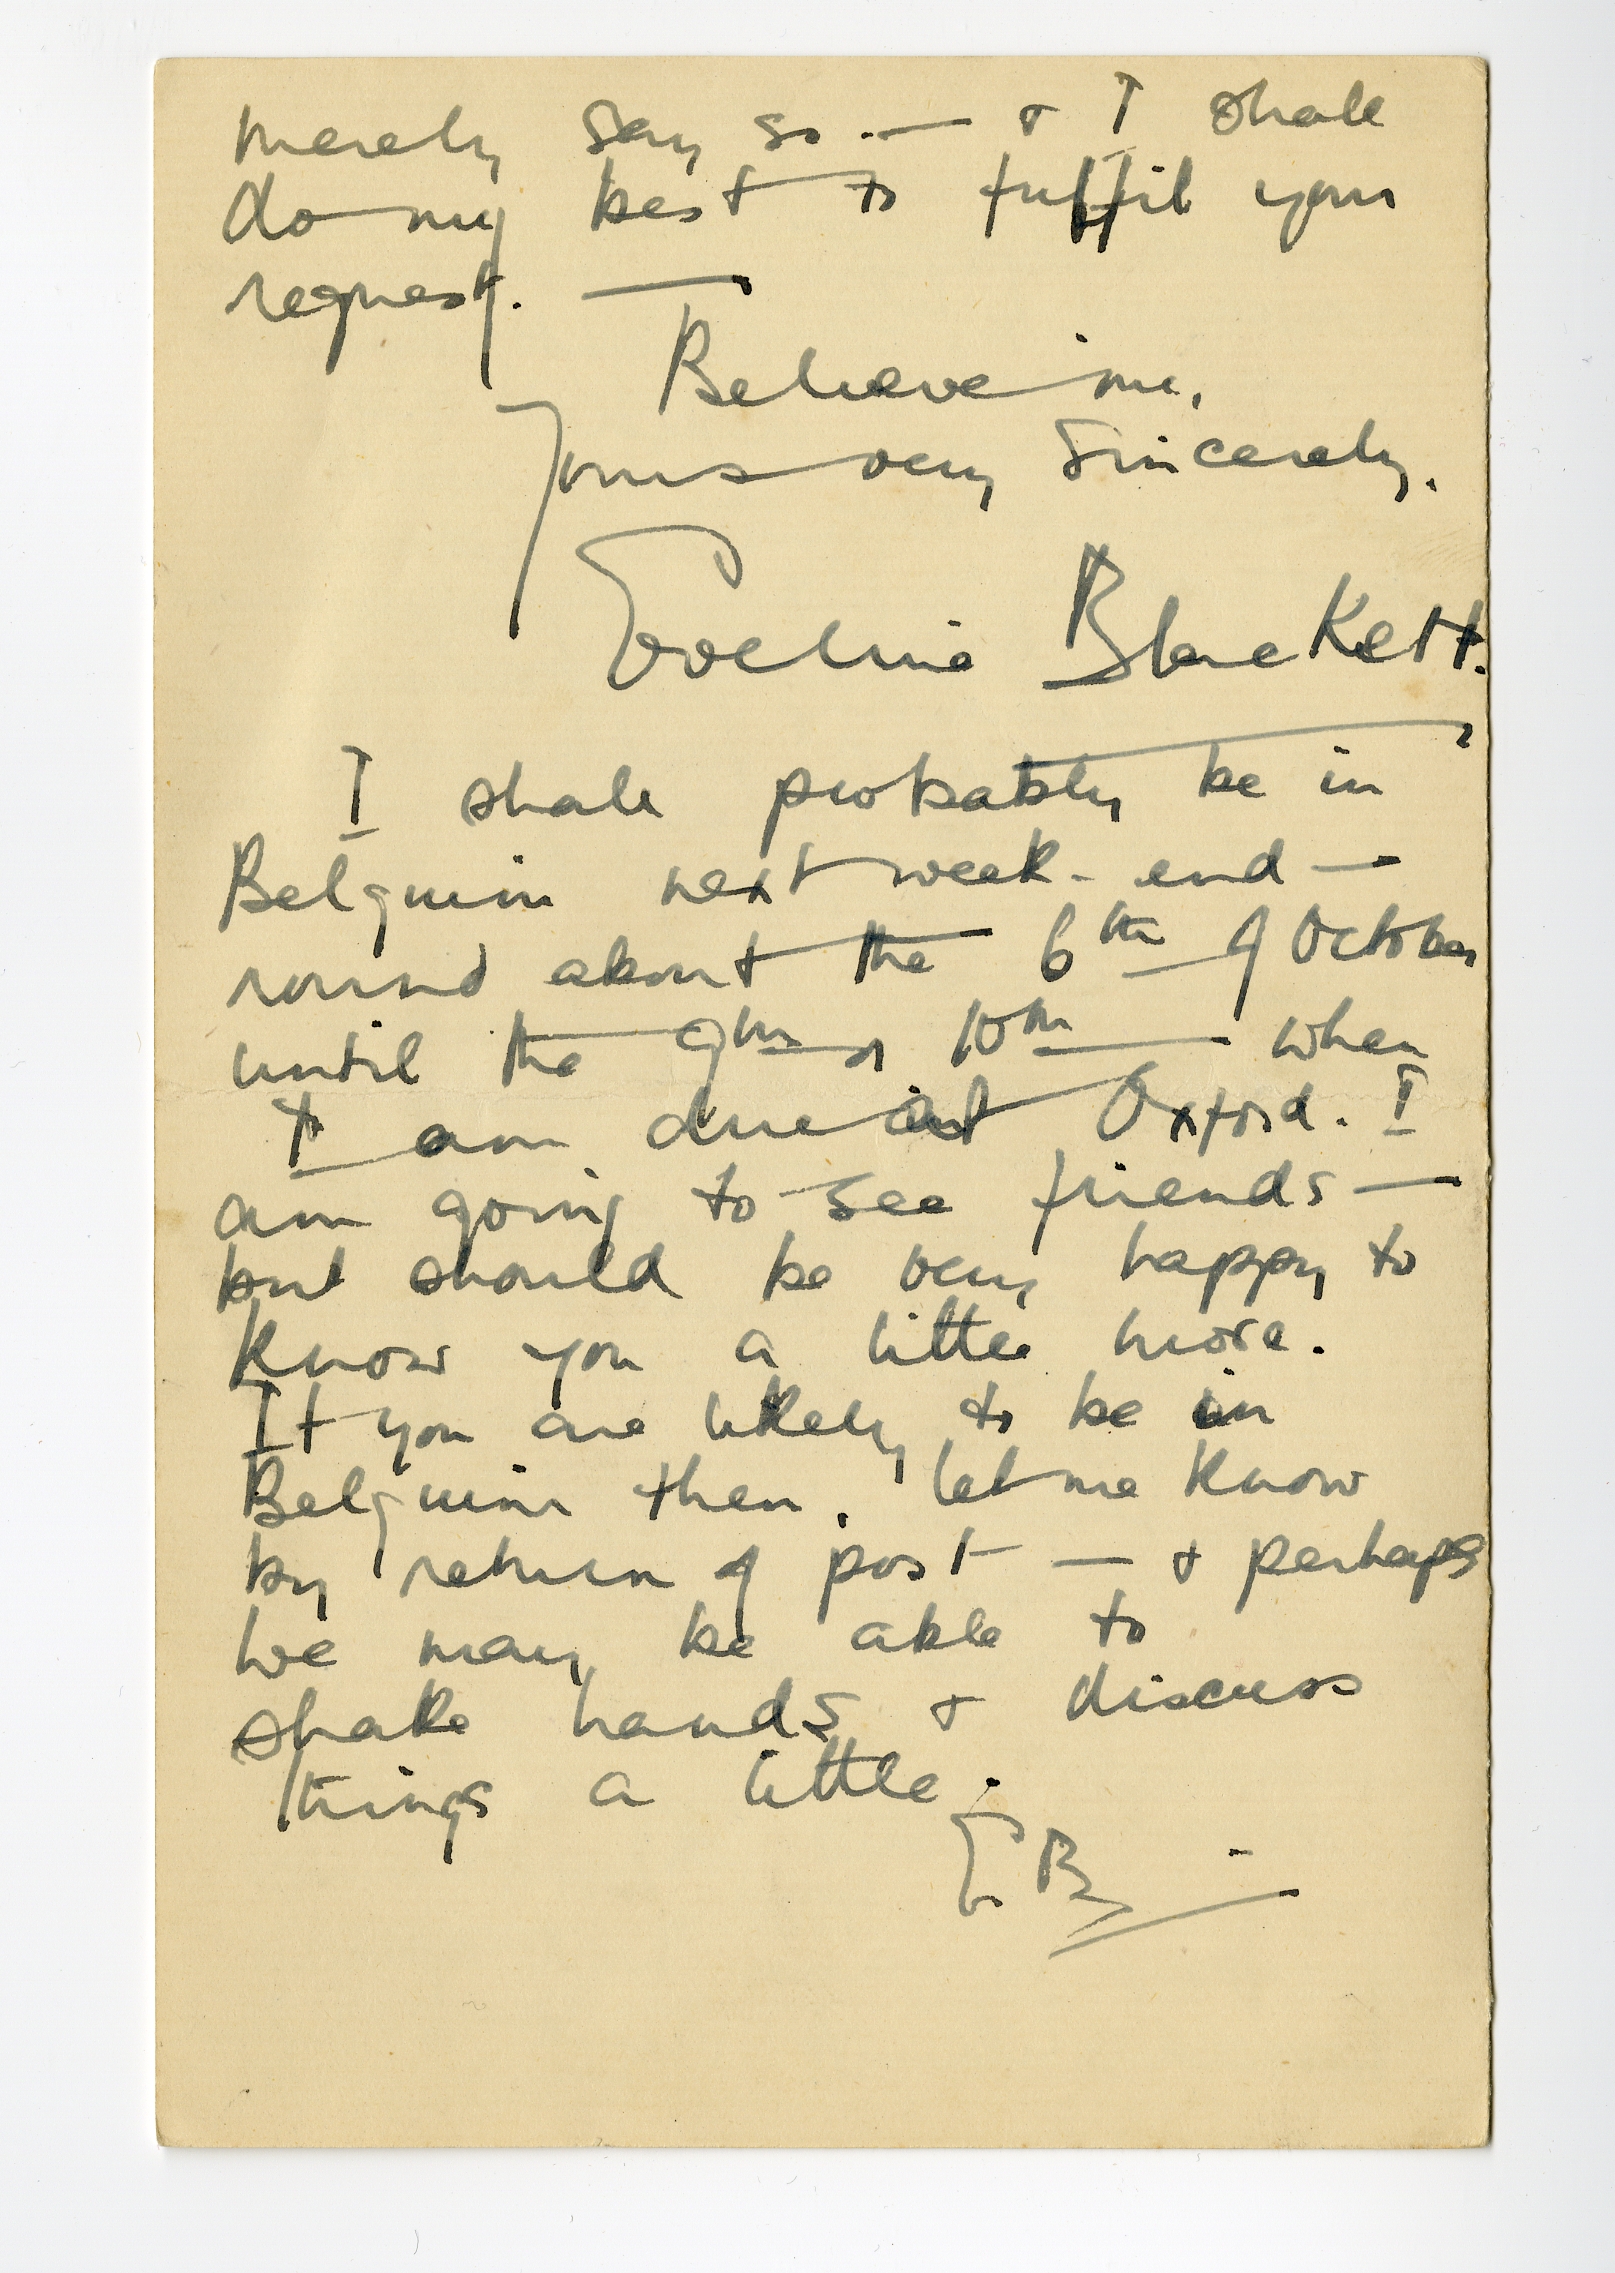 merely say so. — & I shall
do my best to fulfil your
request. —
Believe me,
Yours very sincerely.
Eveline Blackett.
I shall probably be in
Belguim next week-end —
round about the 6th of October
until the 9th or 10th — when
I am due at Oxford. I
am going to see friends —
but should be very happy to
know you a little more.
If you are likely to be in
Belguim then, let me know
by return of post — & perhaps
we may be able to
shake hands & discuss
things a little.
E.B.